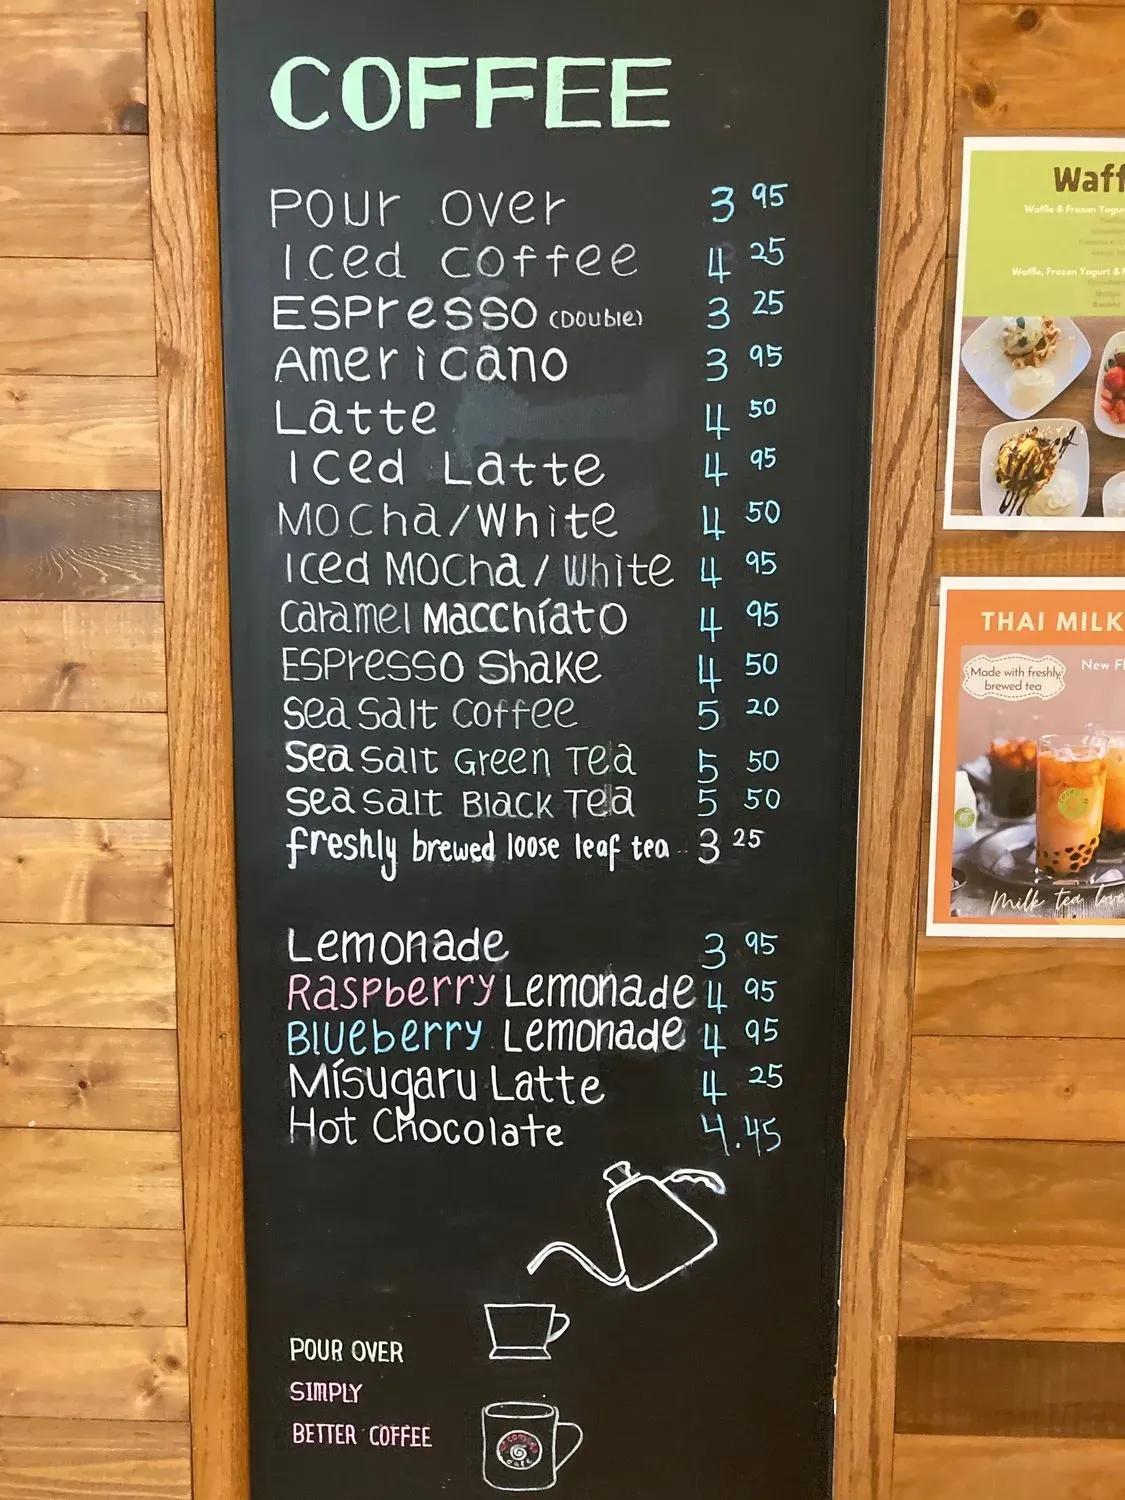 COFFEE
Pour over 3 95
Iced coffee 4 25
Espresso (Double) 3 25
Americano 3 95
Latte 4 50
Iced Latte 4 95
Mocha/White 4 50
Iced Mocha/White 4 95
Caramel Macchíato 4 95
Espresso Shake 4 50
Sea Salt Coffee 5 20
Sea Salt Green Tea 5 50
Sea Salt Black Tea 5 50
freshly brewed loose leaf tea 3 25
Lemonade 3 95
Raspberry Lemonade 4 95
Blueberry Lemonade 4 95
Mísugaru Latte 4 25
Hot Chocolate 4.45
POUR OVER
SIMPLY
BETTER COFFEE
Waff
Waffle & Frozen Yogur
Waffle, Frozen Yogurt &
THAI MILK
Made with freshly
brewed tea
New Fl
Milk tea love